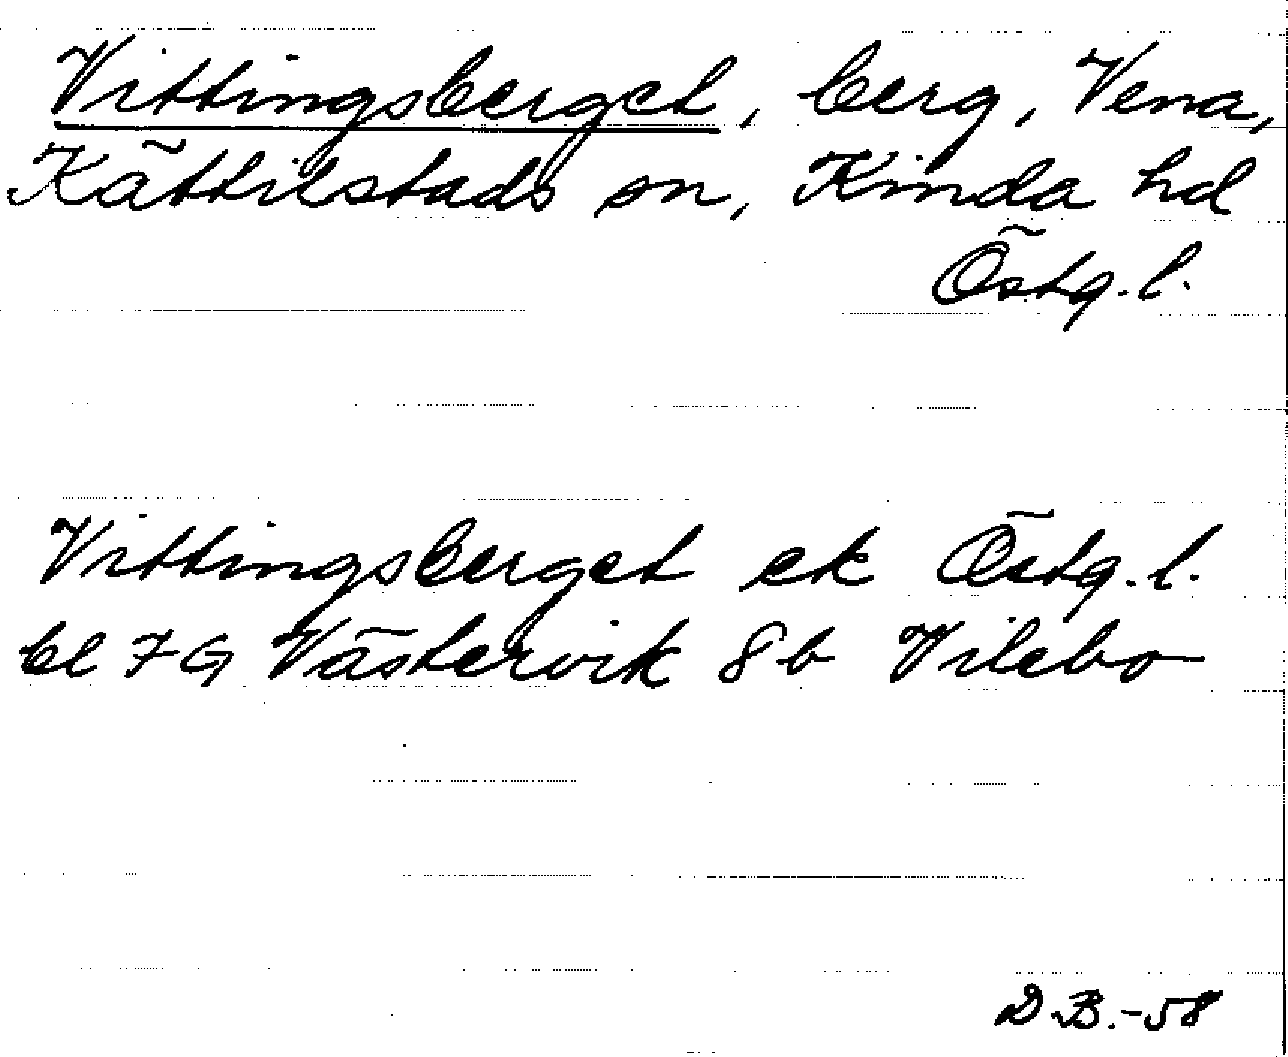 Vittingsberget, berg, Vena,
Kättilstads sn, Kinda hd
Östg.l.
Vittingsberget ek Östg.l.
bl 7G Västervik 8b Vilebo
D.B.-58